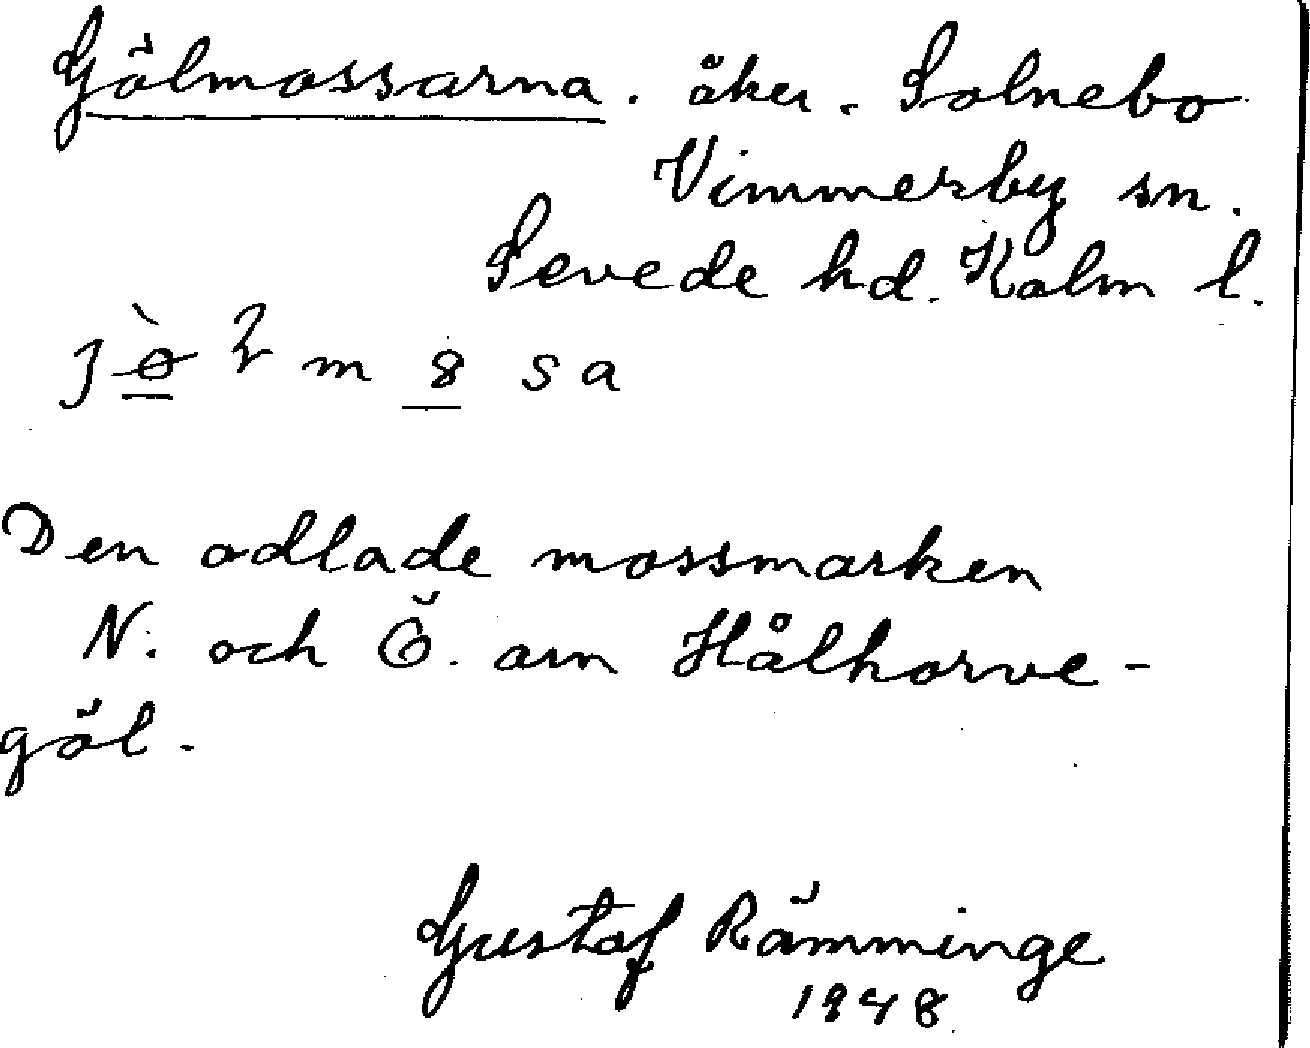 Gölmossarna. åker. Solnebo
Vimmerby sn.
Sevede hd. Kalm l.
Den odlade mossmarken
N. och Ö. om Hålhorve-
göl.
Gustaf Rämminge
1948